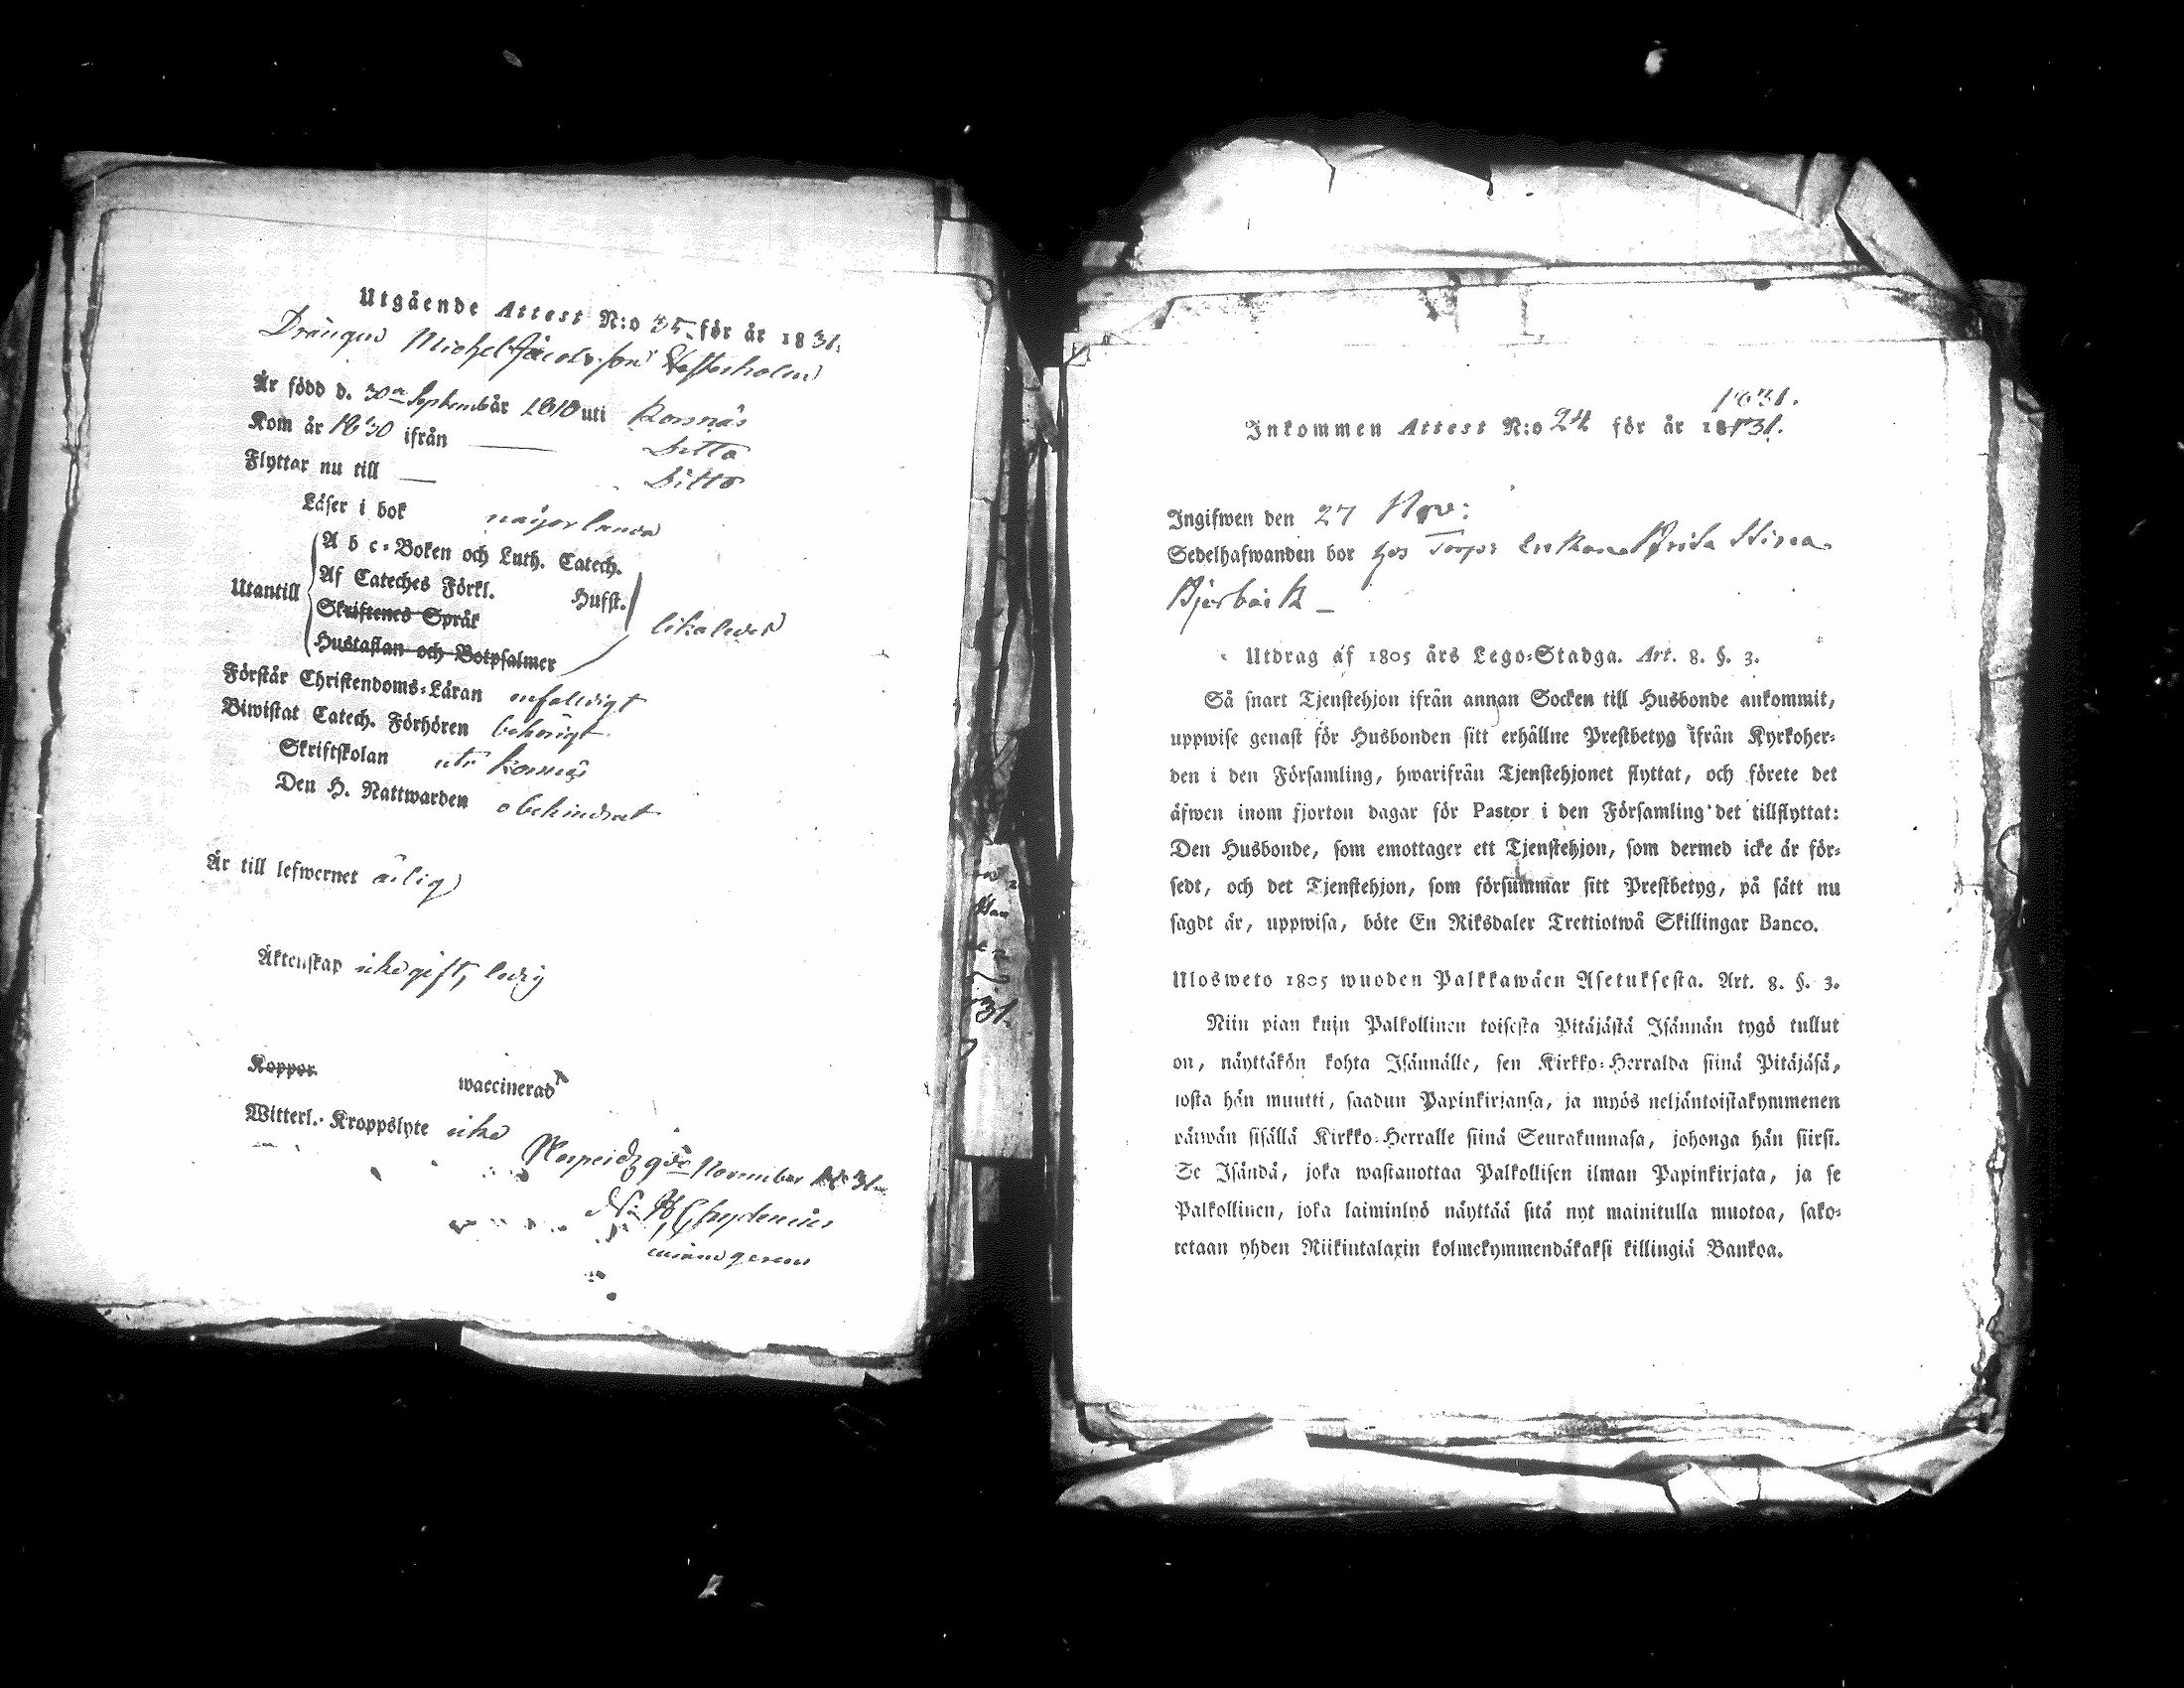 Utgående Attest N:o 35. för år 1831.
Drängen Michel Jacobsson Westerholm
Är född d. 30de September år 1810 uti Korsnäs
Kom år 1830 ifrån — Ditto
Flyttar nu till — Ditto
Läser i bok någorlunda
Utantill
A b c-Boken och Luth. Catech.
Af Cateches Förkl. Hufst.
Skriftenes Språk
Hustaflan och Botpsalmer
likaledes
Förstår Christendoms-Läran enfaldigt
Biwistat Catech. Förhören behörigt
Skriftskolan uti Korsnäs
Den H. Nattwarden obehindrat
Är till lefwernet ärlig
Äktenskap icke gift, ledig
Koppor. waccinerad
Witterl. Kroppslyte icke
November 1831
Chydenius
31.
1831.
Inkommen Attest N:o 24 för år 1831.
Ingifwen den 27 Nov:
Sedelhafwanden bor hos Torps Enkan Brita Stina
Bjerbäck —
Utdrag af 1805 års Lego-Stadga. Art. 8. §. 3.
Så snart Tjenstehjon ifrån annan Socken till Husbonde ankommit,
uppwise genast för Husbonden sitt erhållne Prestbetyg ifrån Kyrkoher-
den i den Församling, hwarifrån Tjenstehjonet flyttat, och förete det
äfwen inom fjorton dagar för Pastor i den Församling det tillflyttat:
Den Husbonde, som emottager ett Tjenstehjon, som dermed icke är för-
sedt, och det Tjenstehjon, som försummar sitt Prestbetyg, på sätt nu
sagdt är, uppwisa, böte En Riksdaler Trettiotwå Skillingar Banco.
Ulosweto 1805 wuoden Palkkawäen Asetuksesta. Art. 8. §. 3.
Niin pian kuin Palkollinen toisesta Pitäjästä Isännän tygö tullut
on, näyttäkön kohta Isännälle, sen Kirkko-Herralda siinä Pitäjäsä,
josta hän muutti, saadun Papinkirjansa, ja myös neljäntoistakymmenen
päiwän sisällä Kirkko-Herralle siinä Seurakunnasa, johonga hän siirst.
Se Isändä, joka wastanottaa Palkollisen ilman Papinkirjata, ja se
Palkollinen, joka laiminlyö näyttää sitä nyt mainitulla muotoa, sako-
tetaan yhden Riikintalarin kolmekymmendäkaksi killingiä Bankoa.